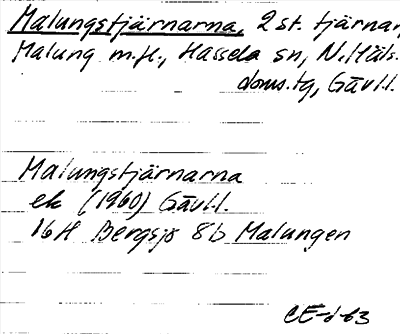 Malungstjärnarna, 2 st. tjärnar,
Malung m.fl., Hassela sn, N. Häls.
doms.tg, Gävl.l.
Malungstjärnarna
ek (1960) Gävl.l.
16H Bergsjö 8b Malungen
CE-d-63